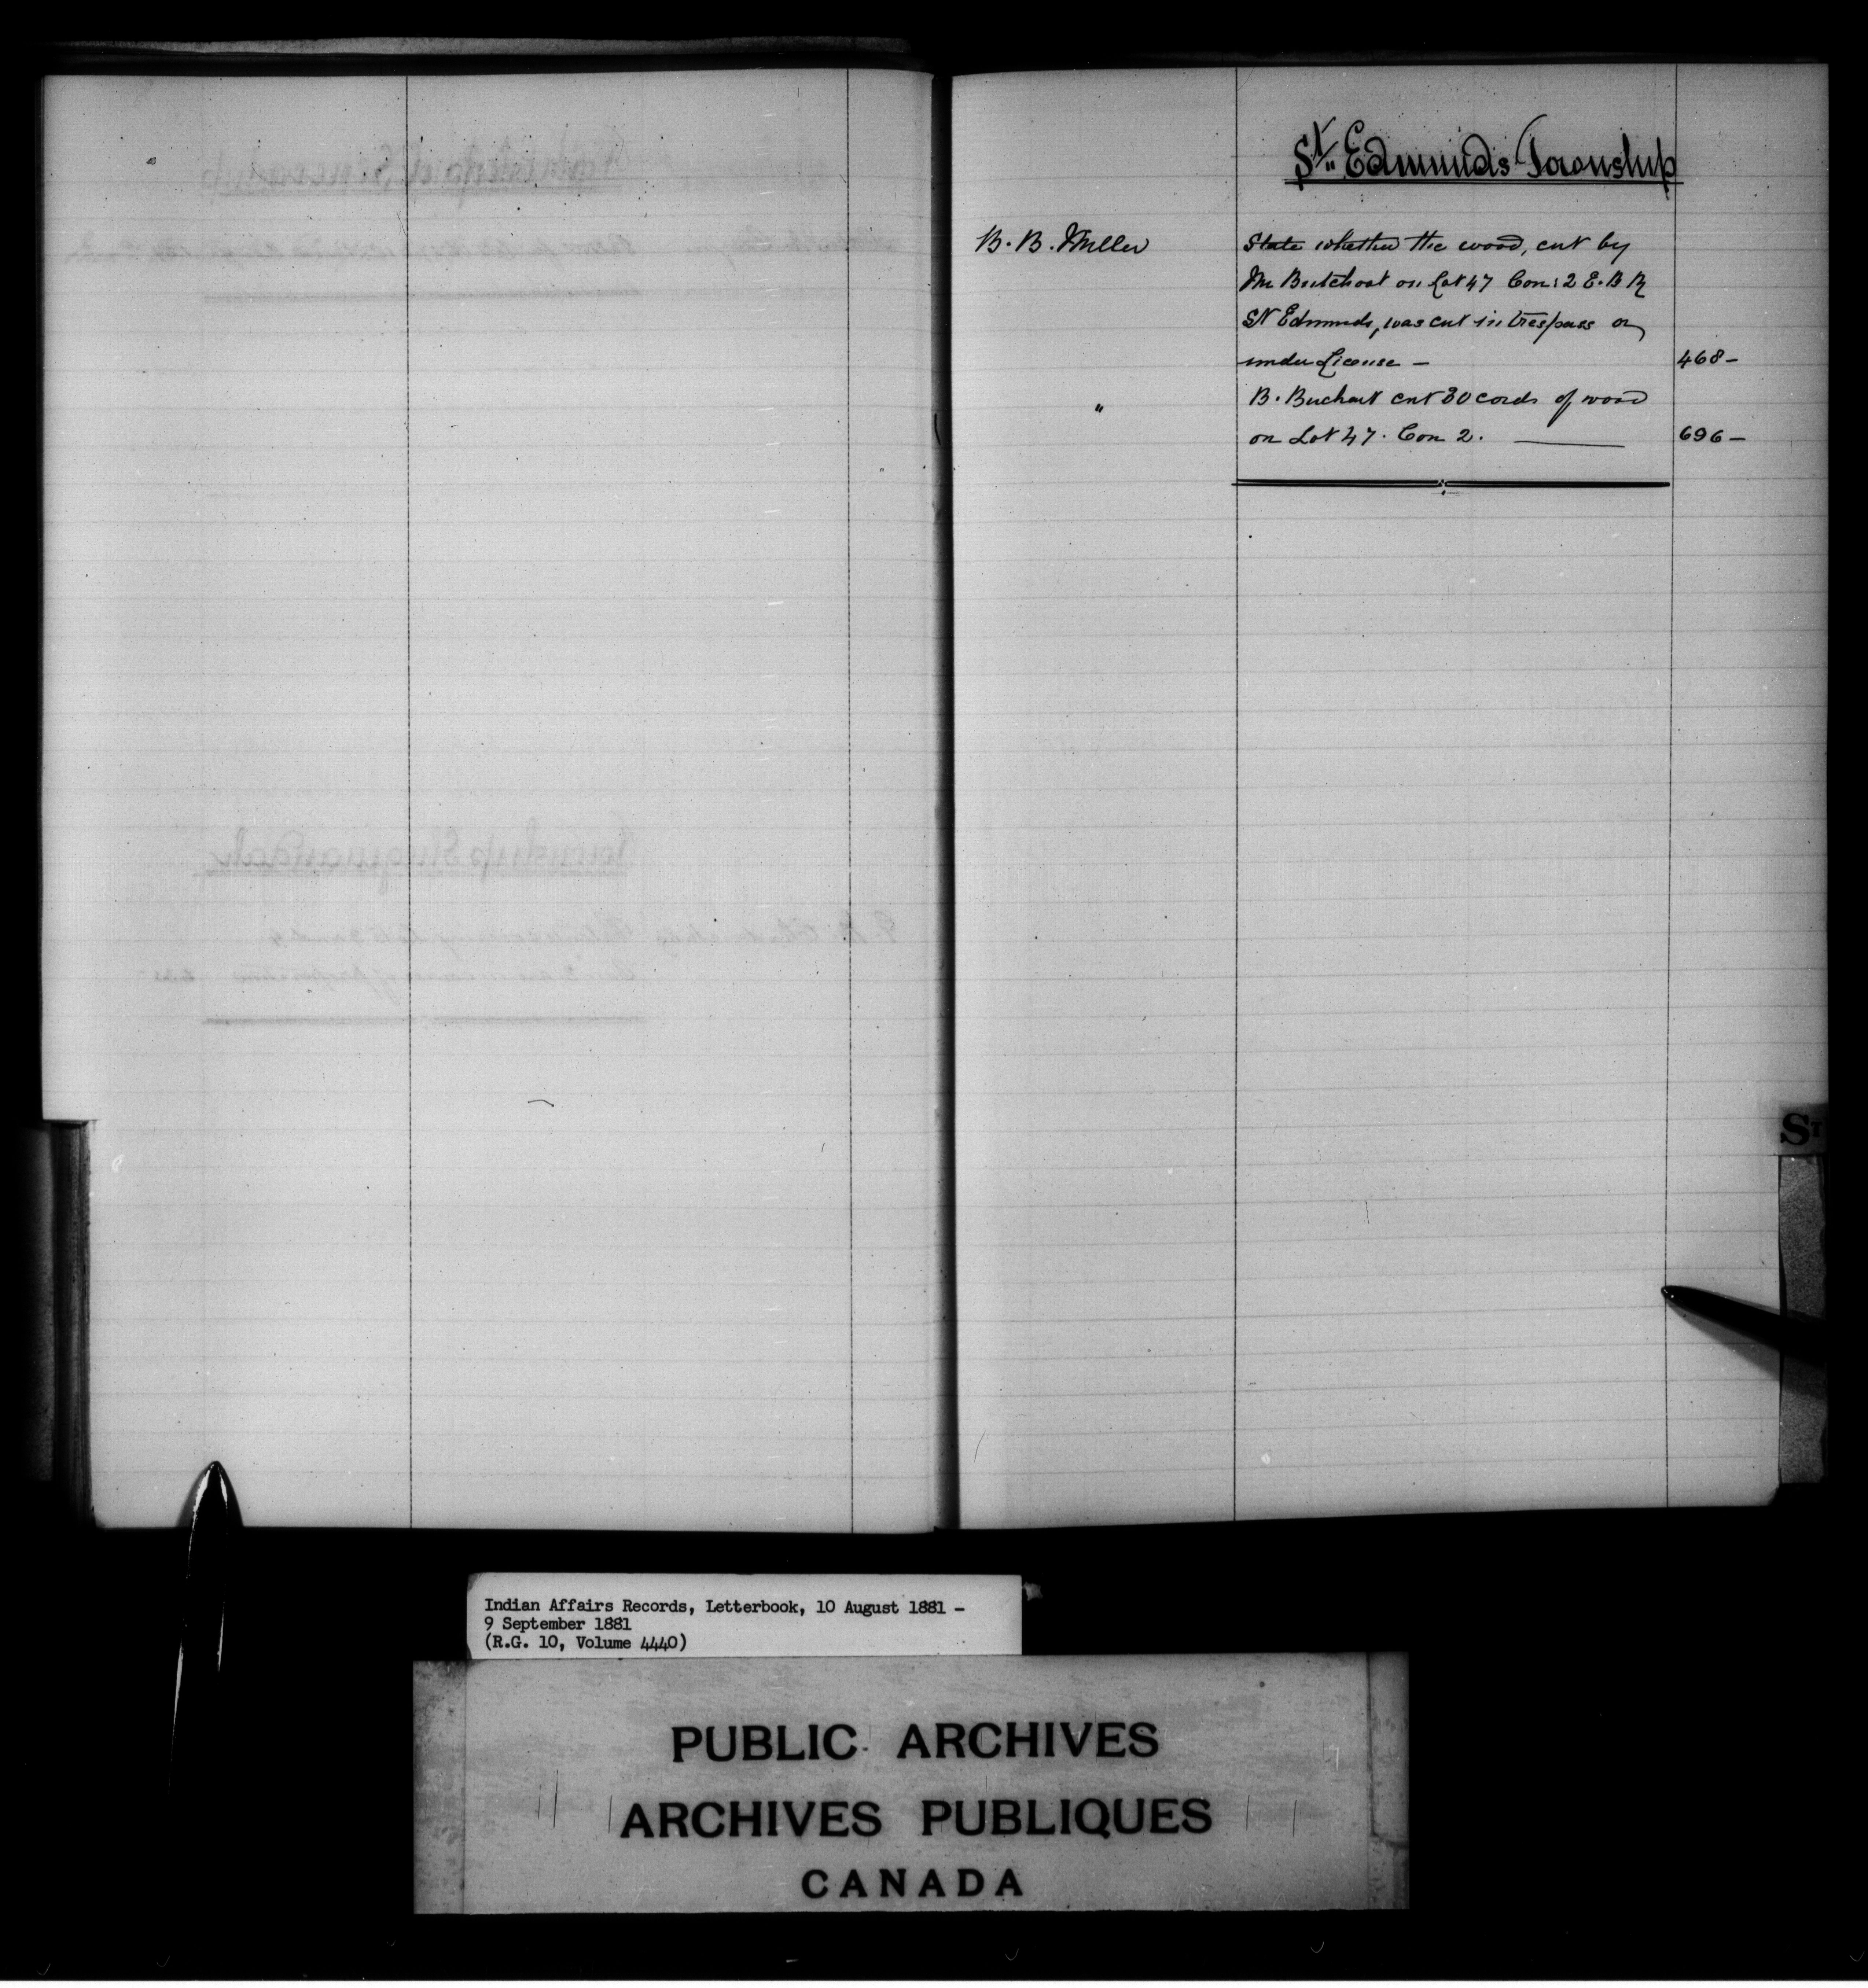 St. Edmunds Township
B. B. Miller State whether the wood, cut by
Mr Butchart on Lot 47 Con: 2 E. B R
St Edmunds, was cut in trespass or
under License — 468 –
" B. Buchart cut 30 cords of wood
on Lot 47. Con 2. — 696 –
ST
Indian Affairs Records, Letterbook, 10 August 1881 –
9 September 1881
(R.G. 10, Volume 4440)
PUBLIC ARCHIVES
ARCHIVES PUBLIQUES
CANADA